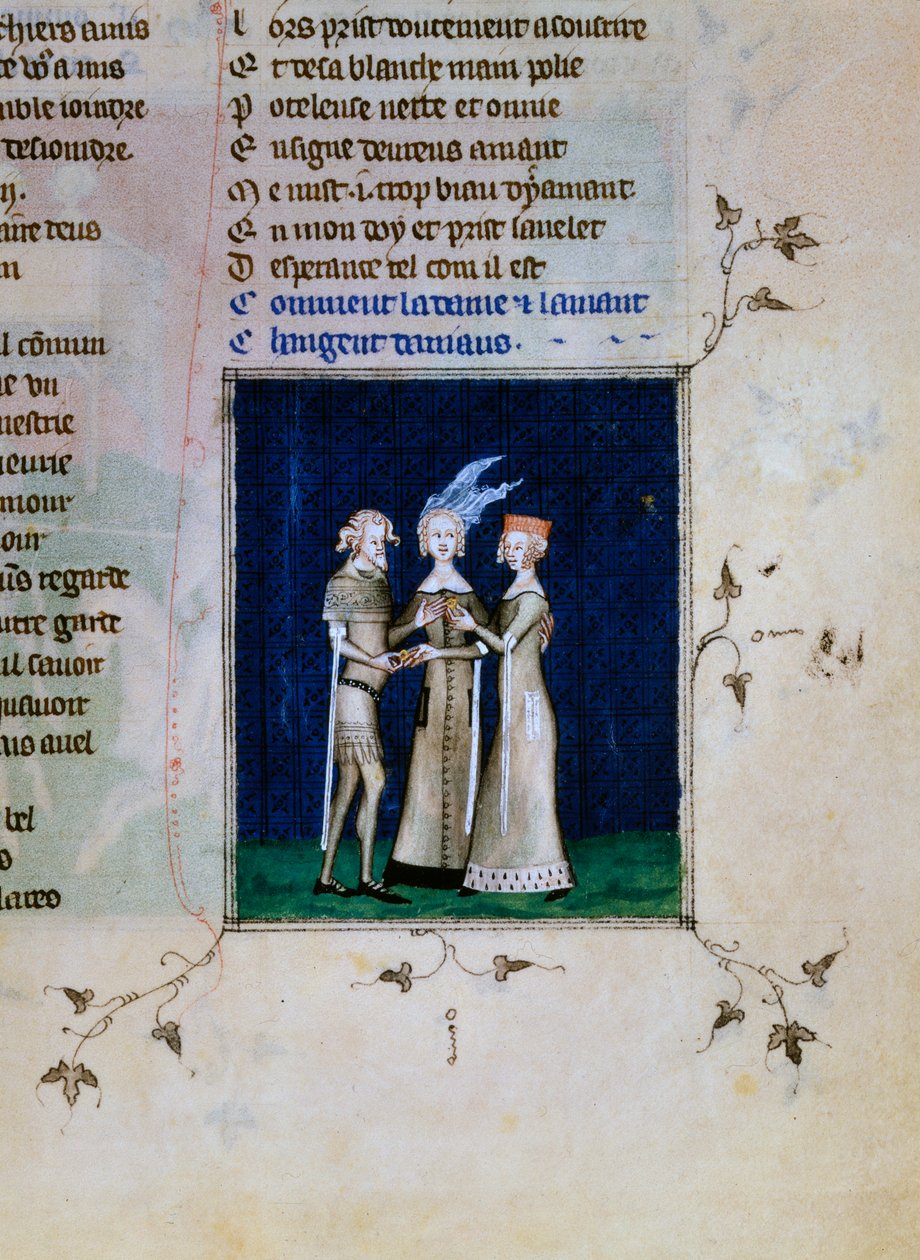 chiers amis
te vo9 a mis
mble ioindre
desioindre.
ij.
aire deus
m
l cōmun
ne vn
mestrie
ieurie
mour
our
us regarde
utre garde
il sauoir
quauoit
ais auel
bel
o
la reo
L ors prist doucement a sousrire
E t de sa blanche main polie
P oteleuse nette et onnie
E nsigne deureus amant
M e mist .i. trop biau dyamant.
E n mon doy et prist lanelet
D esperance tel com il est
C omment la dame & lamant
C hangent daniaus.